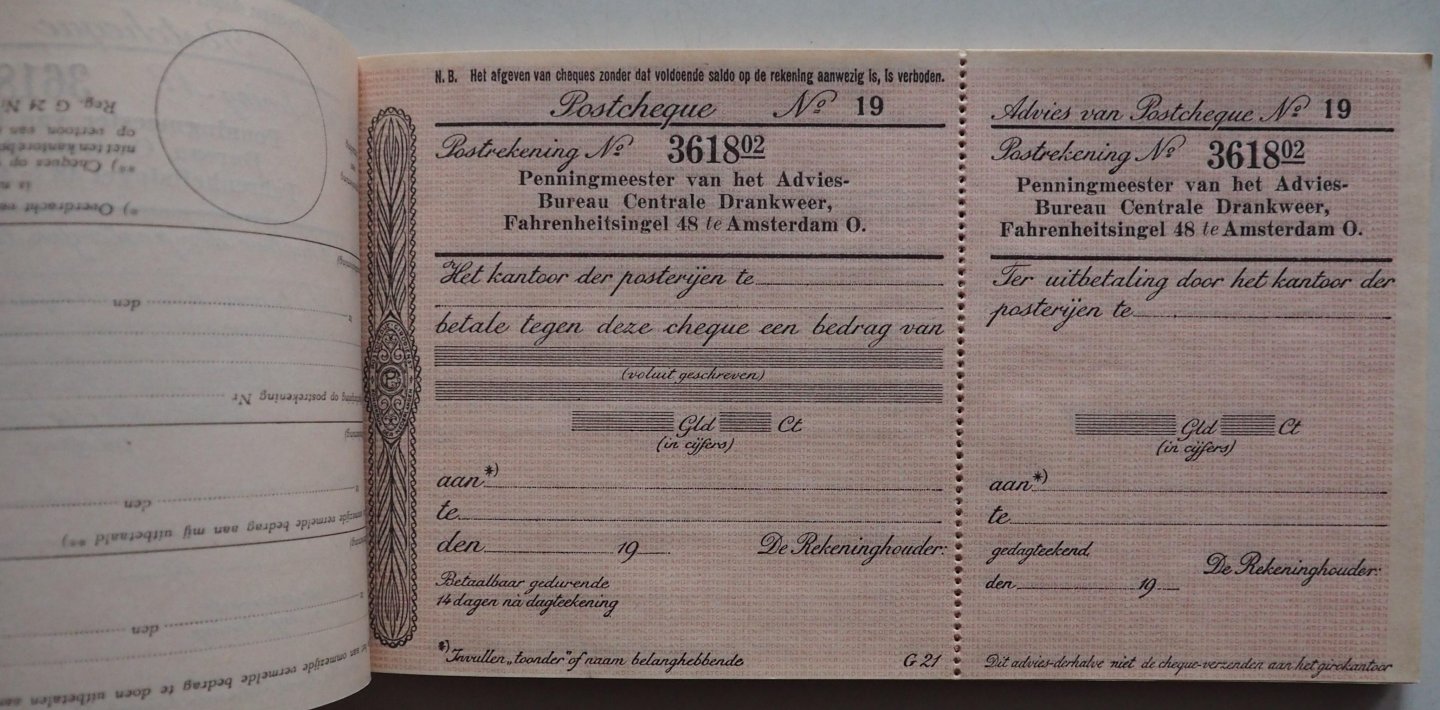 N.B. Het afgeven van cheques zonder dat voldoende saldo op de rekening aanwezig is, is verboden.
Postcheque Nº 19
Postrekening Nº 361802
Penningmeester van het Advies-
Bureau Centrale Drankweer,
Fahrenheitsingel 48 te Amsterdam O.
Het kantoor der posterijen te
betale tegen deze cheque een bedrag van
(voluit geschreven)
Gld Ct
(in cijfers)
aan*)
te
den 19 De Rekeninghouder:
Betaalbaar gedurende
14 dagen na dagteekening
*) Invullen „toonder" of naam belanghebbende G 21
Advies van Postcheque Nº 19
Postrekening Nº 361802
Penningmeester van het Advies-
Bureau Centrale Drankweer,
Fahrenheitsingel 48 te Amsterdam O.
Ter uitbetaling door het kantoor der
posterijen te
Gld Ct
(in cijfers)
aan*)
te
gedagteekend,
De Rekeninghouder:
den 19
Dit advies-derhalve niet de cheque-verzenden aan het girokantoor
het aan ommezijde vermelde bedrag te doen uitbetalen aan
den
ommezijde vermelde bedrag aan mij uitbetaald **)
den
op postrekening Nr
den
*) Overdracht
**) Cheques op
op vertoon van
Reg. G 24